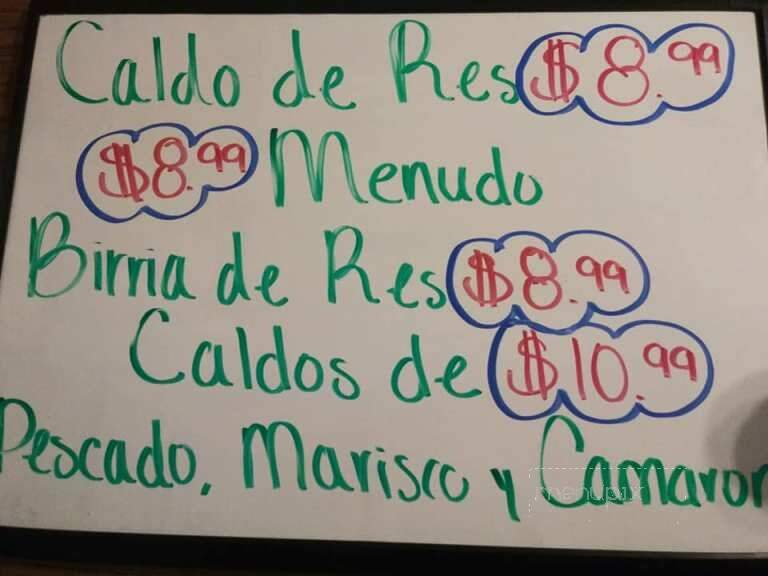 Caldo de Res $8.99
$8.99 Menudo
Birria de Res $8.99
Caldos de $10.99
Pescado, Marisco y Camaron
menupix